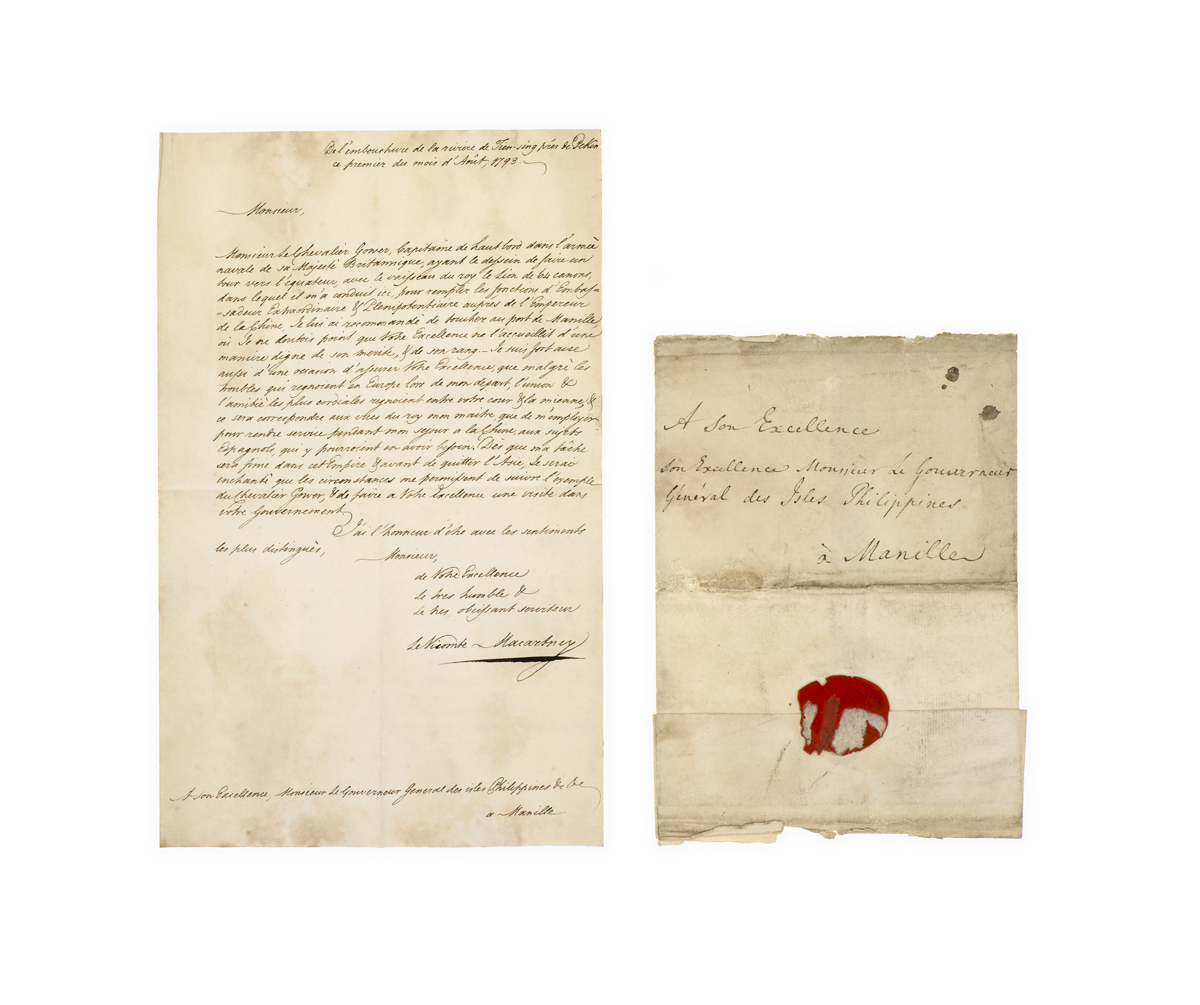 De l'embouchure de la riviere de Tien-sing près de Pekin
ce premier des mois d'Aôut, 1793.
Monsieur,
Monsieur Le Chevalier Gower, Capitaine de haut bord dans l'armèe
navale de sa Majestè Britannique, ayant le dessein de faire un
tour vers l'équateur, avec le vaisseau du roy le Lion de 64 canons,
dans lequel il m'a conduit ici, pour remplir les fonctions d'Embas
=sadeur Extraordinaire & Plenipotentiaire auprès de l'Empereur
de la Chine, Je lui ai recommandè de toucher au port de Manille,
où Je ne doutois point que Votre Excellence ne l'accueillit d'une
maniere digne de son merite, & de son rang. – Je suis fort aise
aussi d'une occasion d'assurer Votre Excellence, que malgrè les
troubles qui regnoient en Europe lors de mon depart, l'union &
l'amitiè les plus cordiales regnoient entre votre cour & la mienne, &
ce sera correspondre aux vues du roy mon maitre que de m'employer
pour rendre service pendant mon sejour a la Chine, aux sujets
Espagnols, qui y pourroient en avoir besoin. Dès que ma tâche
sera finie dans cet Empire & avant de quitter l'Asie, Je serai
enchantè que les circonstances me permissent de suivre l'exemple
du Chevalier Gower, & de faire a Votre Excellence une visite dans
votre Gouvernement.
J'ai l'honneur d'être avec les sentiments
les plus distinguès,
Monsieur,
de Votre Excellence
le tres humble &
le tres obeissant serviteur
Le Vicomte Macartney
A son Excellence, Monsieur Le Gouverneur General des isles Philippines &c &c
a Manille
A Son Excellence
Son Excellence Monsieur Le Gouverneur
Général des Isles Philippines
à Manille